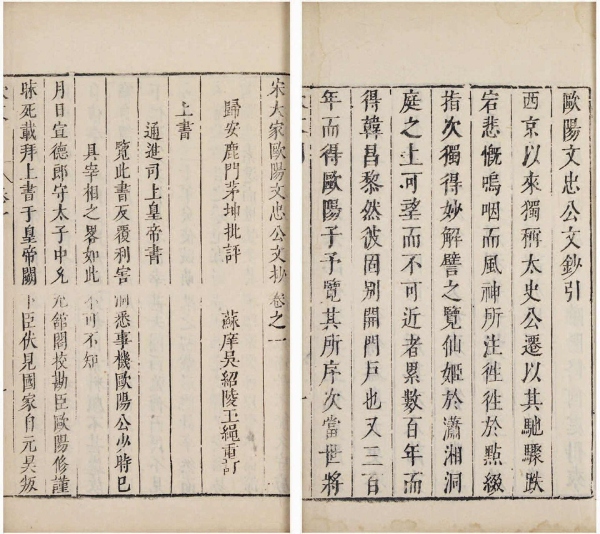 歐陽文忠公文鈔引
西京以來獨稱太史公遷以其馳驟跌
宕悲慨嗚咽而風神所注徃徃於點綴
指次獨得妙解譬之覽仙姬於瀟湘洞
庭之上可望而不可近者累數百年而
得韓昌黎然彼固别開門戸也又三百
年而得歐陽子予覽其所序次當世將
宋大家歐陽文忠公文抄卷之一
歸安鹿門茅坤批評 蘇庠吳紹陵玉繩重訂
上書
通進司上皇帝書
覽此書反覆利害洞悉事機歐陽公少時已
具宰相之畧如此不可不知
月日宣德郎守太子中允充館閣校勘臣歐陽修謹
昧死載拜上書于皇帝闕下臣伏見國家自元昊叛